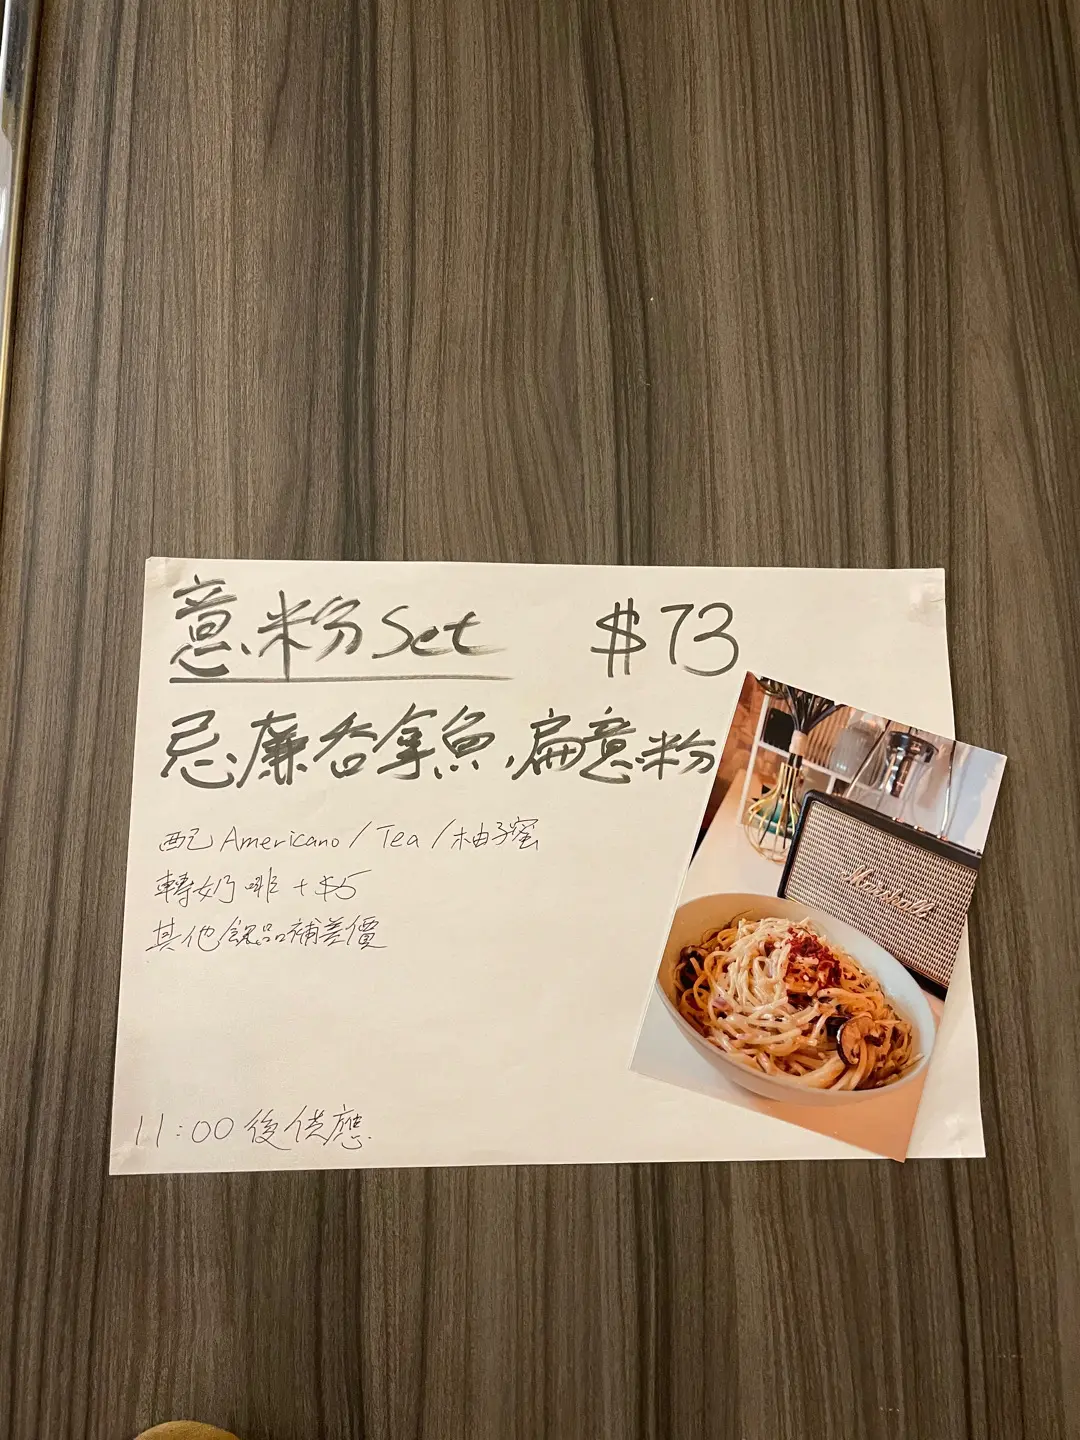 意粉 Set $73
忌廉吞拿魚,扁意粉
配 Americano / Tea / 柚子蜜
轉奶啡 + $5
其他飲品補差價
11:00 後供應
Marshall